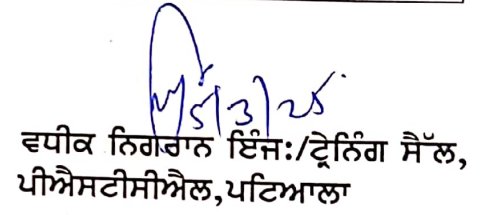 5/3/25
ਵਧੀਕ ਨਿਗਰਾਨ ਇੰਜ:/ਟ੍ਰੇਨਿੰਗ ਸੈੱਲ,
ਪੀਐਸਟੀਸੀਐਲ,ਪਟਿਆਲਾ